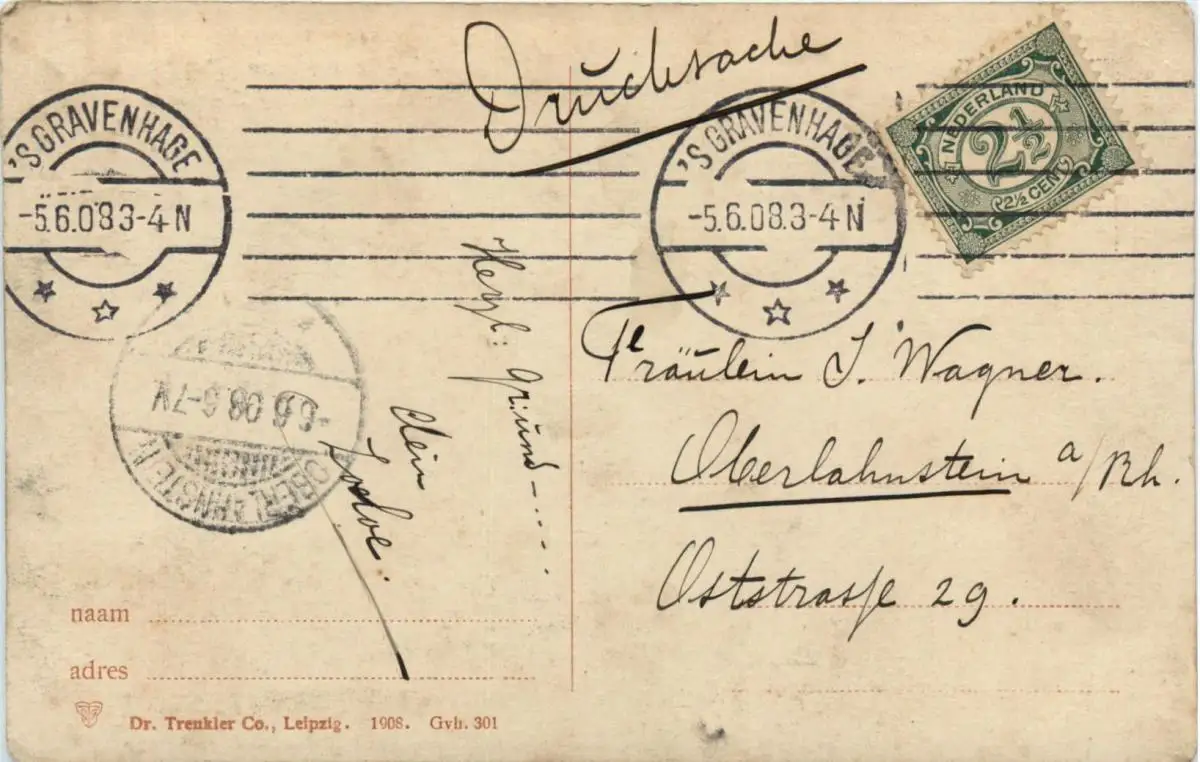 Drucksache
'S GRAVENHAGE
-5.6.08 3-4 N
'S GRAVENHAGE
-5.6.08 3-4 N
NEDERLAND
2½
2½ CENT
Herzl: 
Dein
OBERLAHNSTEIN
-6.6.08 6-7V
Fräulein J. Wagner.
Oberlahnstein a/Rh.
Oststrasse 29.
naam
adres
Dr. Trenkler Co., Leipzig. 1908. Gvh. 301